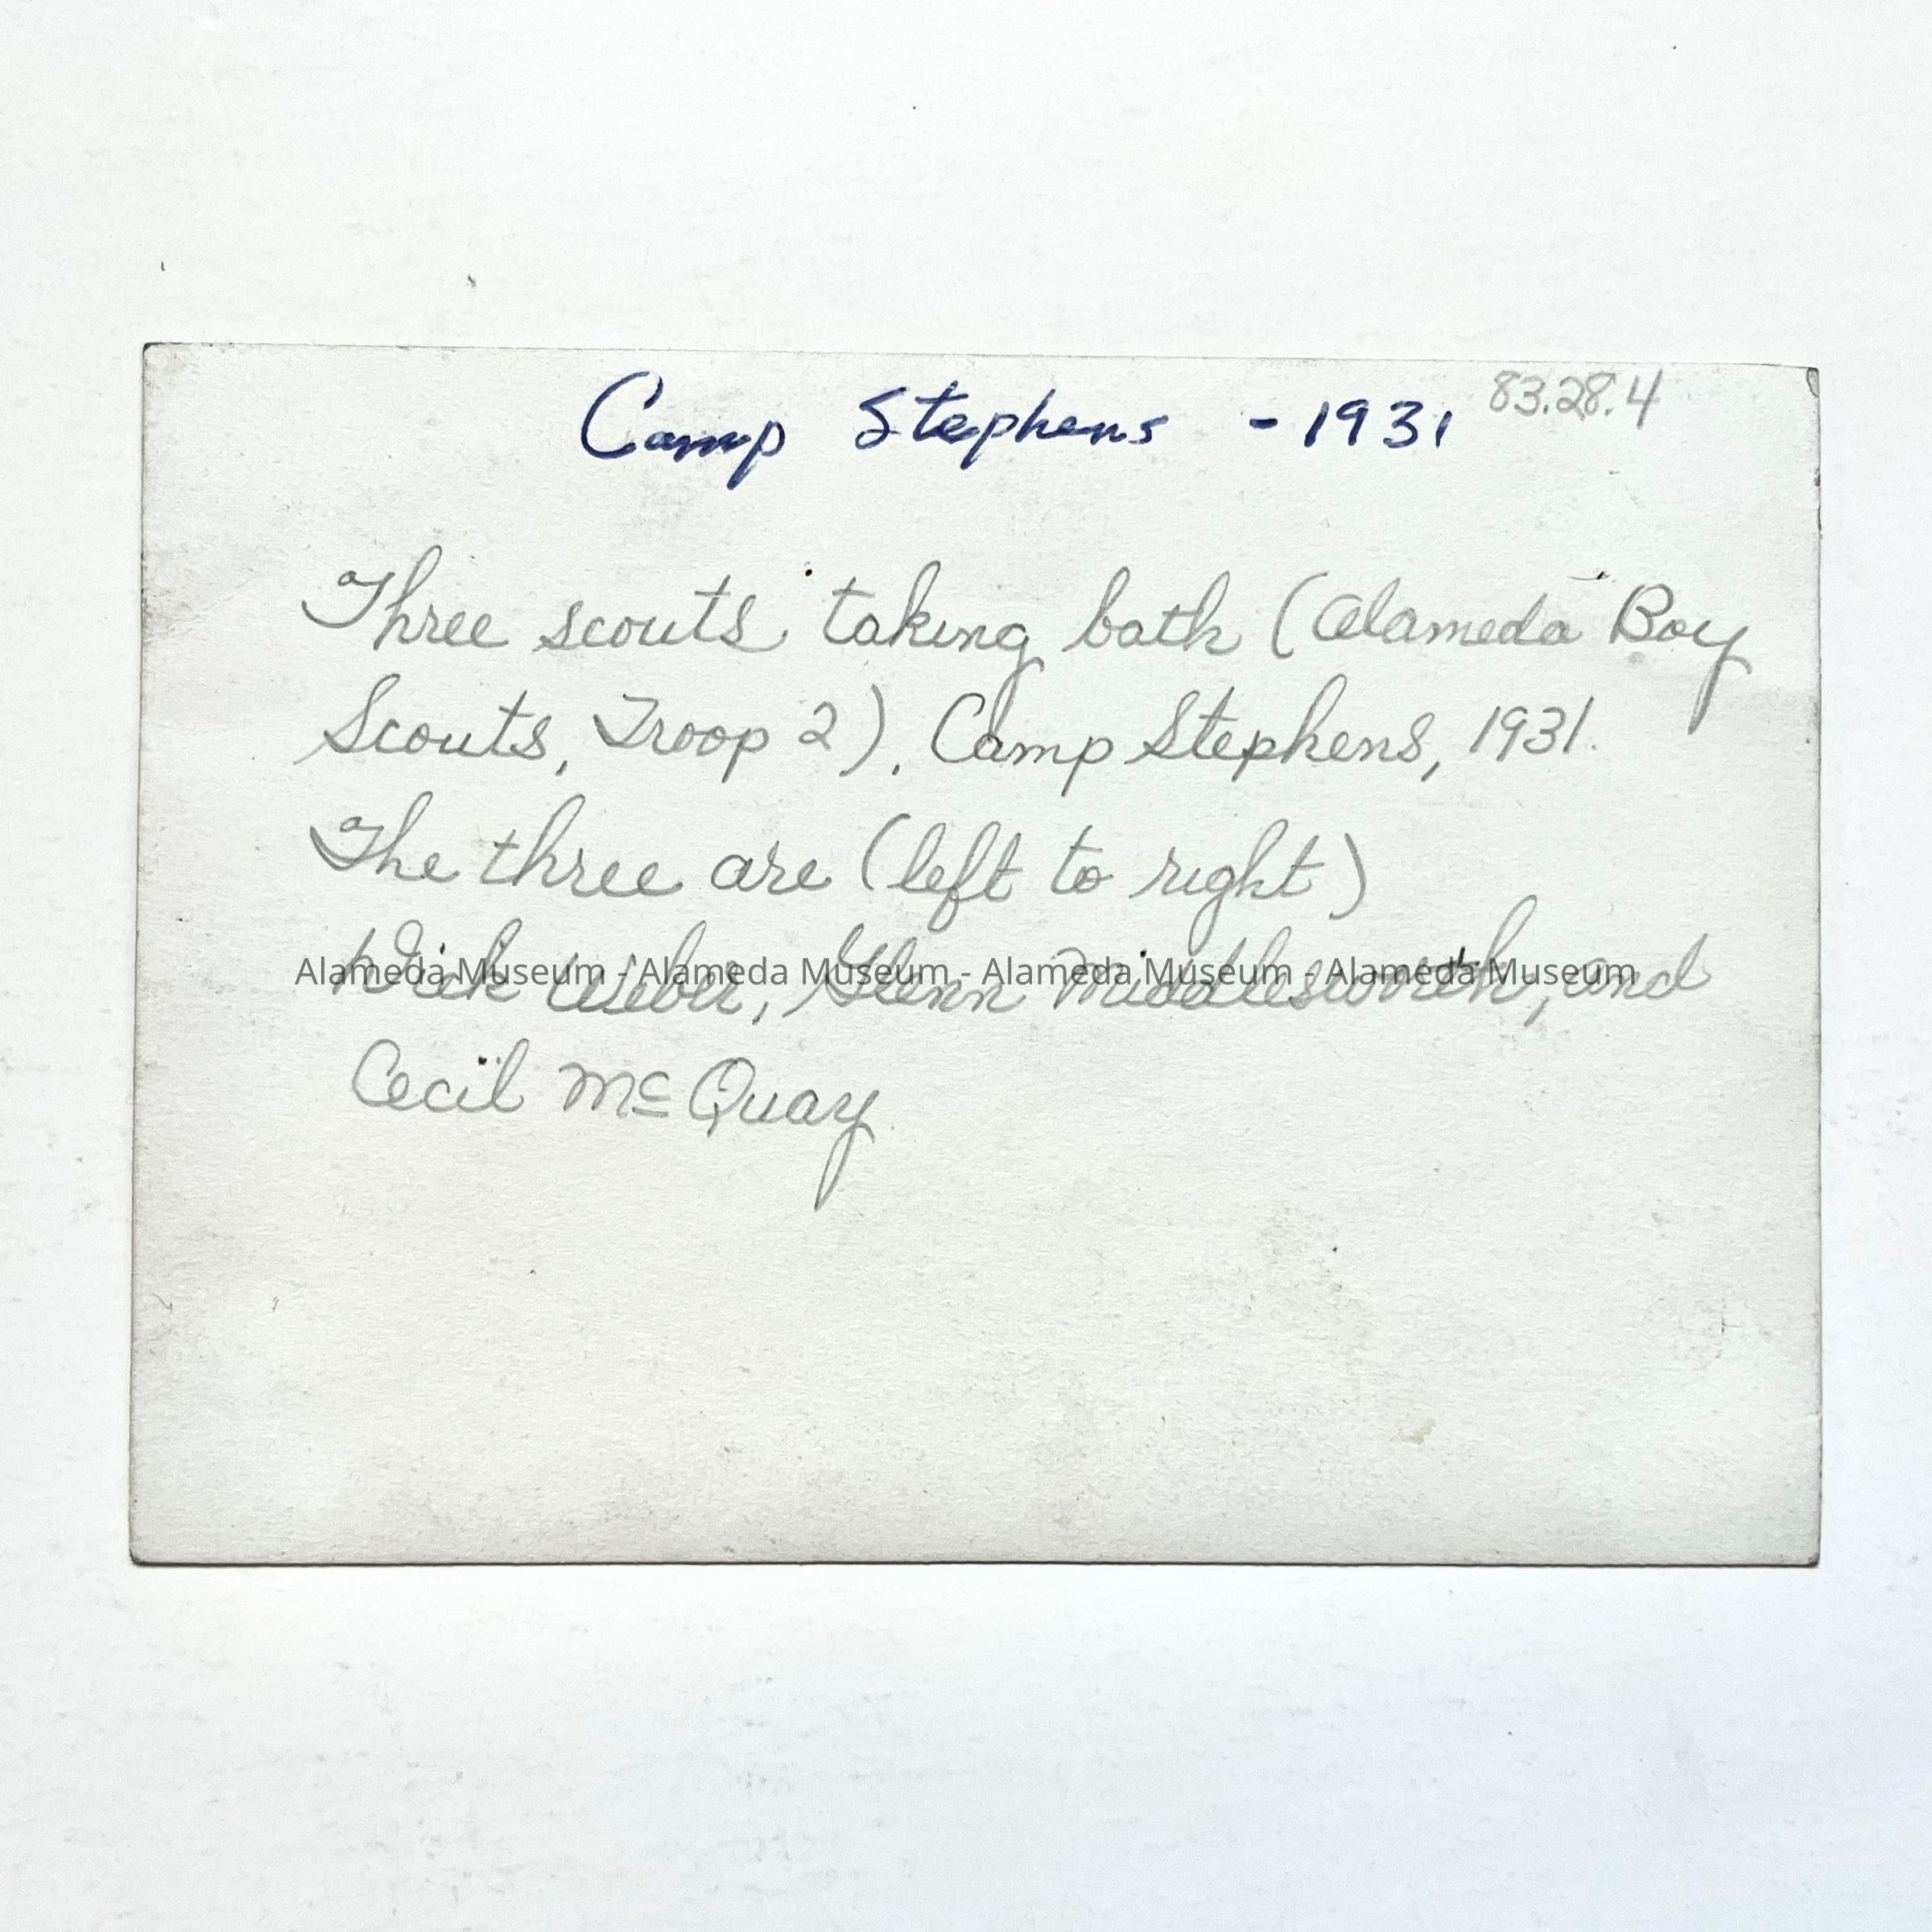 Camp Stephens - 1931 83.28.4
Three scouts taking bath (Alameda Boy
Scouts, Troop 2). Camp Stephens, 1931.
The three are (left to right)
Dick Weber, Glenn Middlesworth, and
Alameda Museum - Alameda Museum - Alameda Museum - Alameda Museum
Cecil McQuay